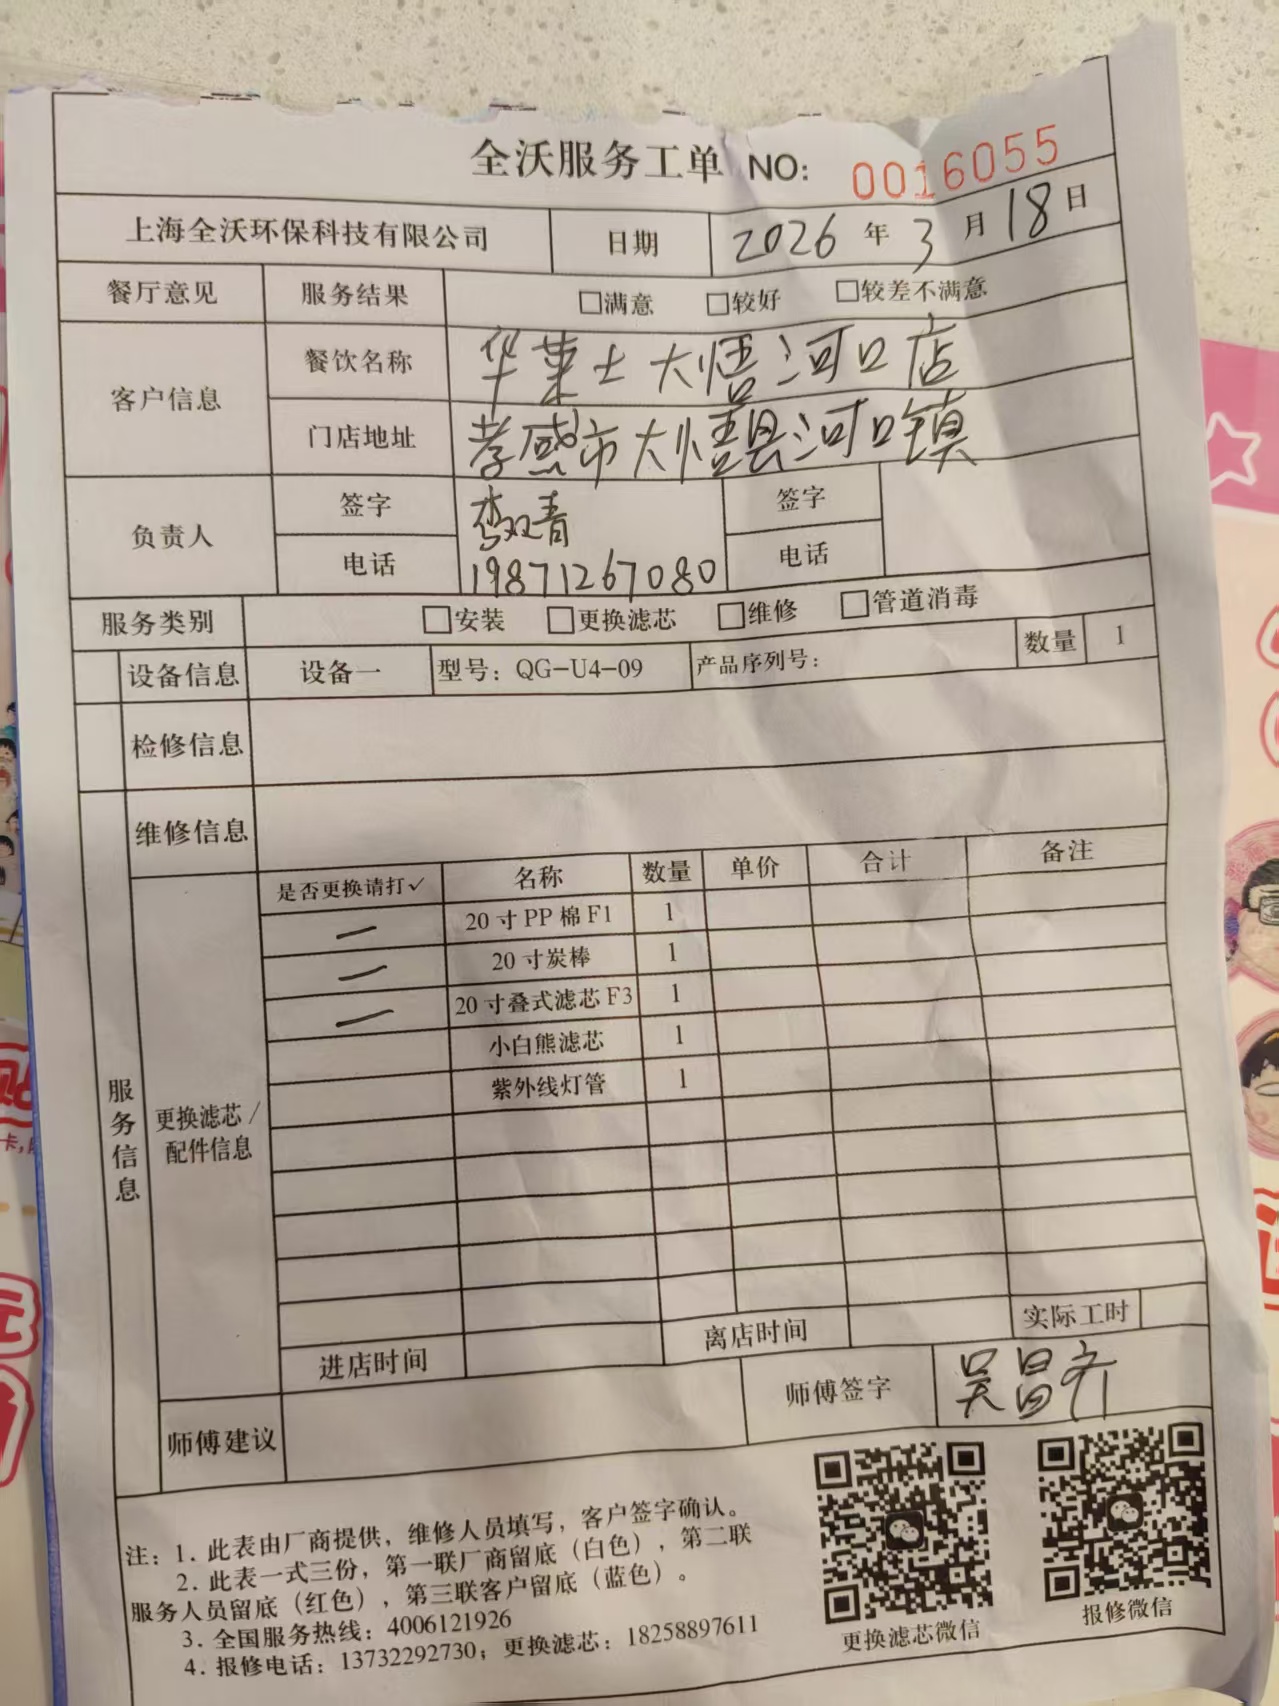 全沃服务工单 NO: 0016055
上海全沃环保科技有限公司 日期 2026 年 3 月 18 日
餐厅意见 服务结果 □满意 □较好 □较差不满意
客户信息 餐饮名称 华莱士大悟河口店
门店地址 孝感市大悟县河口镇
负责人 签字 李双青 签字
电话 19871267080 电话
服务类别 □安装 □更换滤芯 □维修 □管道消毒
设备信息 设备一 型号：QG-U4-09 产品序列号： 数量 1
检修信息
维修信息
服务信息
更换滤芯/
配件信息
是否更换请打✓ 名称 数量 单价 合计 备注
— 20寸PP棉F1 1
— 20寸炭棒 1
— 20寸叠式滤芯F3 1
小白熊滤芯 1
紫外线灯管 1
进店时间 离店时间 实际工时
师傅建议 师傅签字 吴昌齐
注：1. 此表由厂商提供，维修人员填写，客户签字确认。
2. 此表一式三份，第一联厂商留底（白色），第二联
服务人员留底（红色），第三联客户留底（蓝色）。
3. 全国服务热线：4006121926
4. 报修电话：13732292730；更换滤芯：18258897611
更换滤芯微信 报修微信